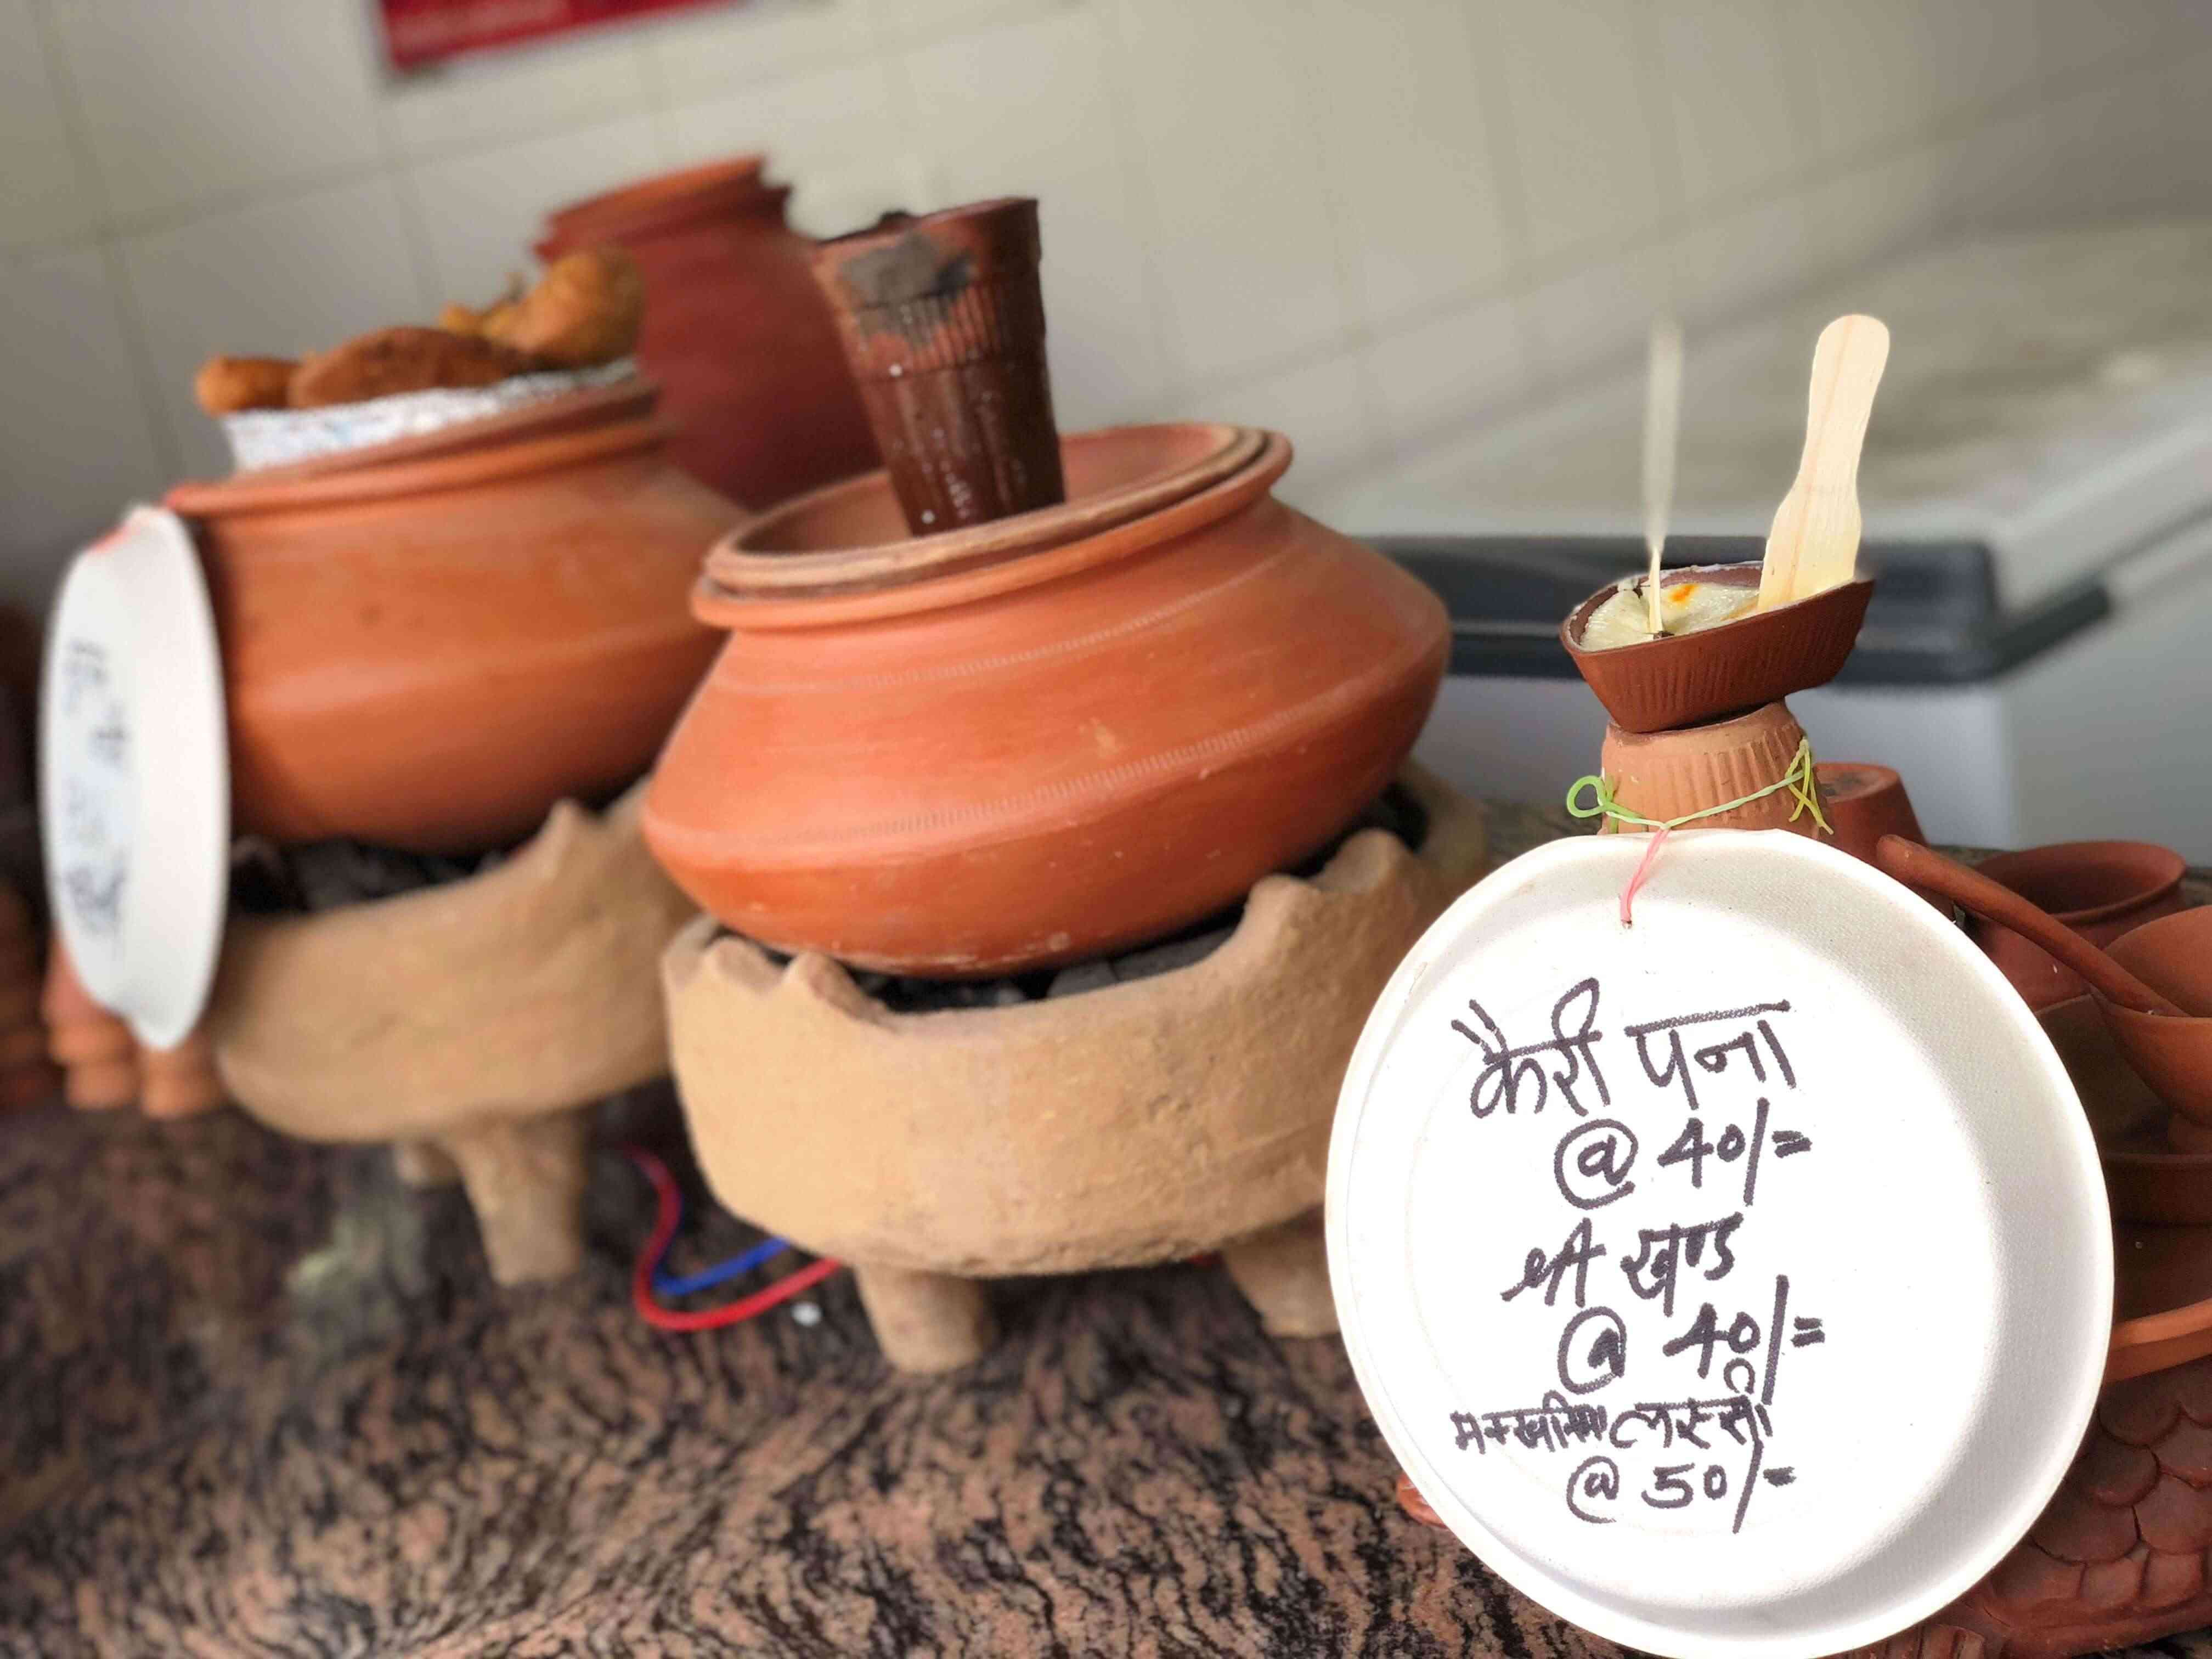 कैरी पना
@ 40/=
श्री खण्ड
@ 40/=
मक्खनिया लस्सी
@ 50/=